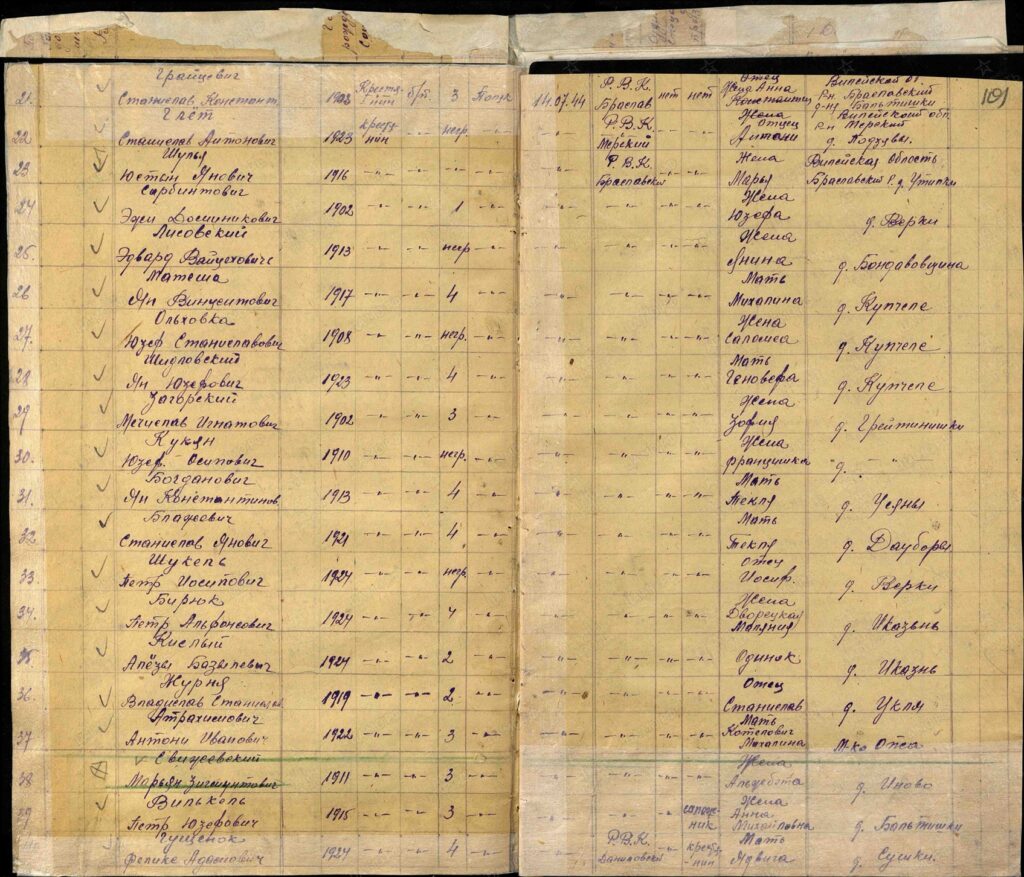 Грайцевич
21. Станислав Констант. 1902 Крестя-нин б/п 3 Поляк 14.07.44 Р.В.К. Браслав нет нет Жена Анна Константин Вилейской об. Рн. Браславский д-ня Бальтишки 101
Глет
22 Станислав Антонович 1923 крестянин -"- негр. -"- -"- Р.В.К. Мерский -"- -"- Отец Антони Вилейской обл. Рн Мерский д. Лодзувы.
Шулья
23 Юстын Янович 1916 -"- -"- -"- -"- -"- Р.В.К. Браславский -"- -"- Жена Марья Вилейская Область Браславский Р. д. Утишки
Сарбинтович
24 Эжи Доминикович 1902 -"- -"- 1 -"- -"- -"- -"- -"- Жена Юзефа д. Верки
Лисовский
25. Эдвард Вайцехович 1913 -"- -"- негр -"- -"- -"- -"- -"- Жена Янина д. Бондавовщина
Матеша
26 Ян Винцентович 1917 -"- -"- 4 -"- -"- -"- -"- -"- Мать Михалина д. Купчеле
Ольховка
27. Юзеф Станиславович 1908 -"- -"- негр. -"- -"- -"- -"- -"- Жена Саломея д. Купчеле
Шидловский
28 Ян Юзефович 1923 -"- -"- 4 -"- -"- -"- -"- -"- Мать Геновефа д. Купчеле
Загорский
29 Мечислав Игнатович 1902 -"- -"- 3 -"- -"- -"- -"- -"- Жена Зофия д. Грейтинишки
Кукян
30. Юзеф. Осипович 1910 -"- -"- негр. -"- -"- -"- -"- -"- Жена Францишка д. -"-
Богданович
31. Ян Константинов 1913 -"- -"- 4 -"- -"- -"- -"- -"- Мать Текля д. Усяны
Блажевич
32 Станислав Янович 1921 -"- -"- 4 -"- -"- -"- -"- -"- Мать Текля д. Дауборы
Шукель
33. Петр Иосипович 1924 -"- -"- негр. -"- -"- -"- -"- -"- Отец Иосиф. д. Верки
Бирюк
34. Петр Альфонсович 1924 -"- -"- 4 -"- -"- -"- -"- -"- Жена Дворецкая Маляния д. Иказнь
Кислый
35 Алёзы Базылевич 1924 -"- -"- 2 -"- -"- -"- -"- -"- Одинок д. Иказнь
Журня
36. Владислав Станислав 1919 -"- -"- 2 -"- -"- -"- -"- -"- Отец Станислав д. Укля
Атрахимович
37 Антони Иванович 1922 -"- -"- 3 -"- -"- -"- -"- -"- Мать Котелович Михалина М-ко Опса
Свижевский
38 Марьян Зигмунтович 1911 -"- -"- 3 -"- -"- -"- -"- -"- Жена д. Иново
Вилькель
39 Петр Юзефович 1915 -"- -"- 3 -"- -"- -"- -"- сапож-ник Жена Анна Михайловна д. Бальтишки
Гущенок
Феликс Адамович 1924 -"- -"- 4 -"- -"- Р.В.К. Даниловский -"- крестя-нин Мать Ядвига д. Сушки.